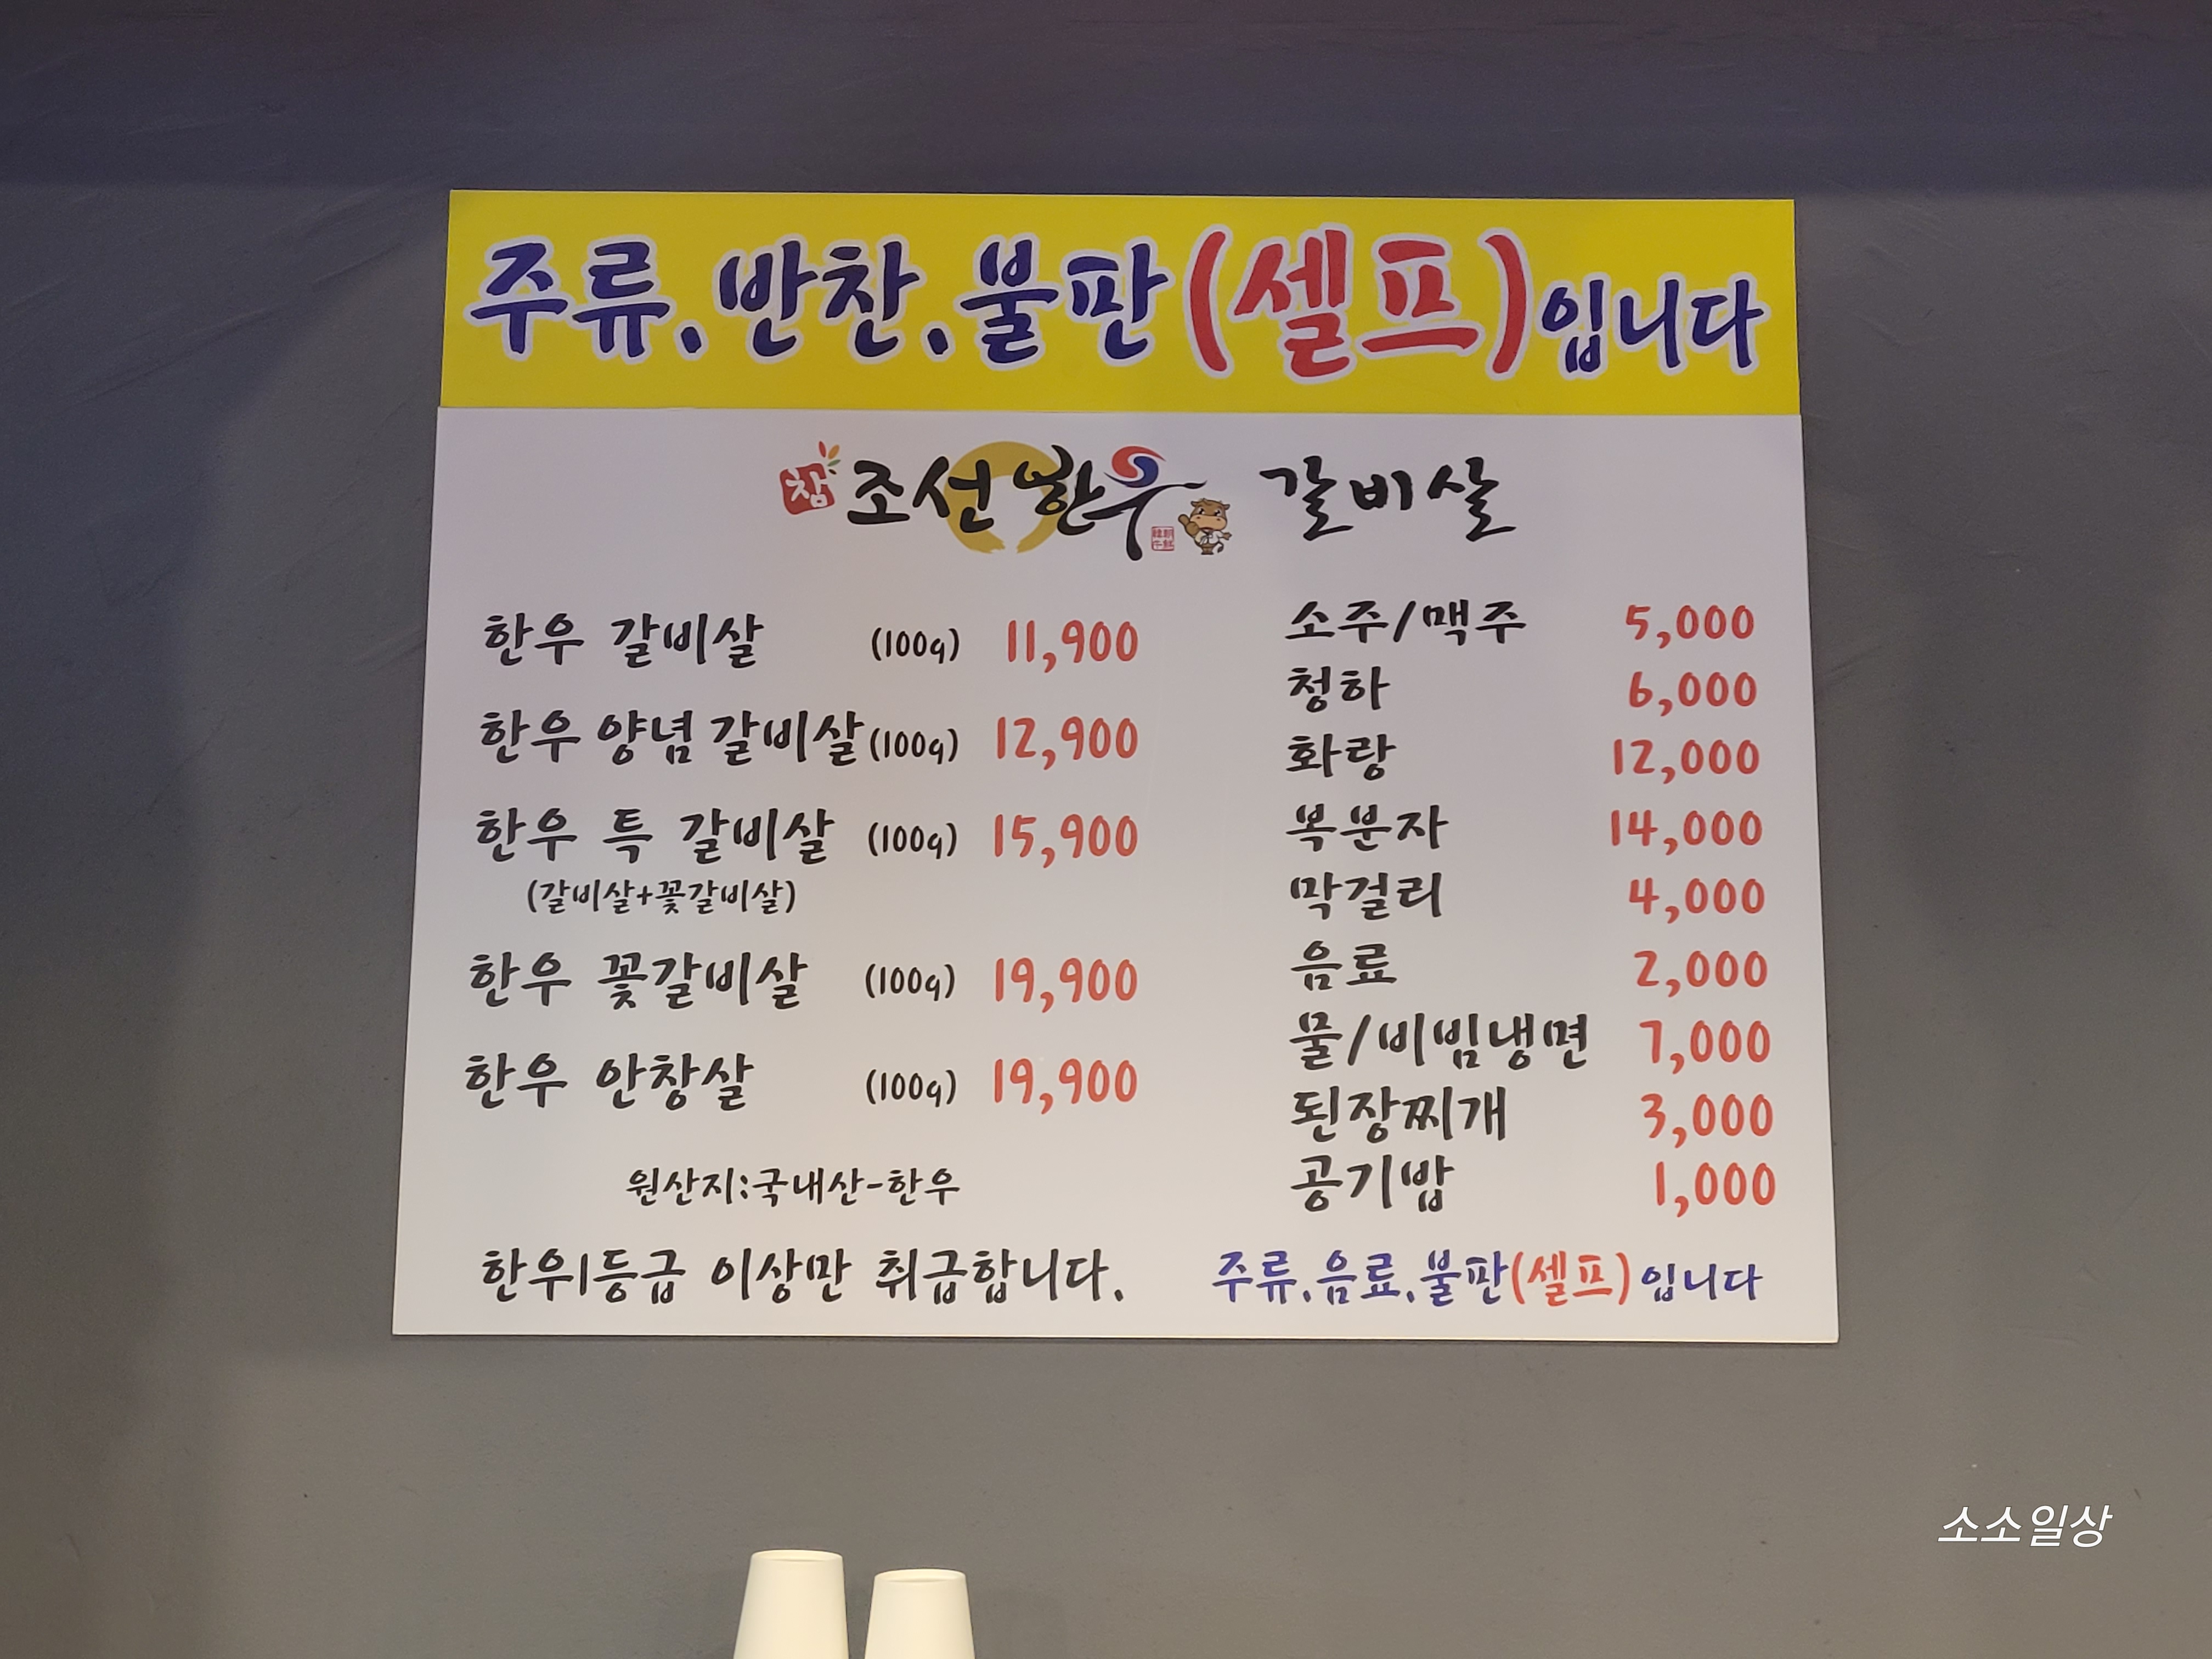 주류.반찬.불판(셀프)입니다
참 조선한우 갈비살
한우 갈비살 (100g) 11,900
한우 양념 갈비살(100g) 12,900
한우 특 갈비살 (100g) 15,900
(갈비살+꽃갈비살)
한우 꽃갈비살 (100g) 19,900
한우 안창살 (100g) 19,900
원산지:국내산-한우
한우1등급 이상만 취급합니다.
소주/맥주 5,000
청하 6,000
화랑 12,000
복분자 14,000
막걸리 4,000
음료 2,000
물/비빔냉면 7,000
된장찌개 3,000
공기밥 1,000
주류.음료.불판(셀프)입니다
소소일상